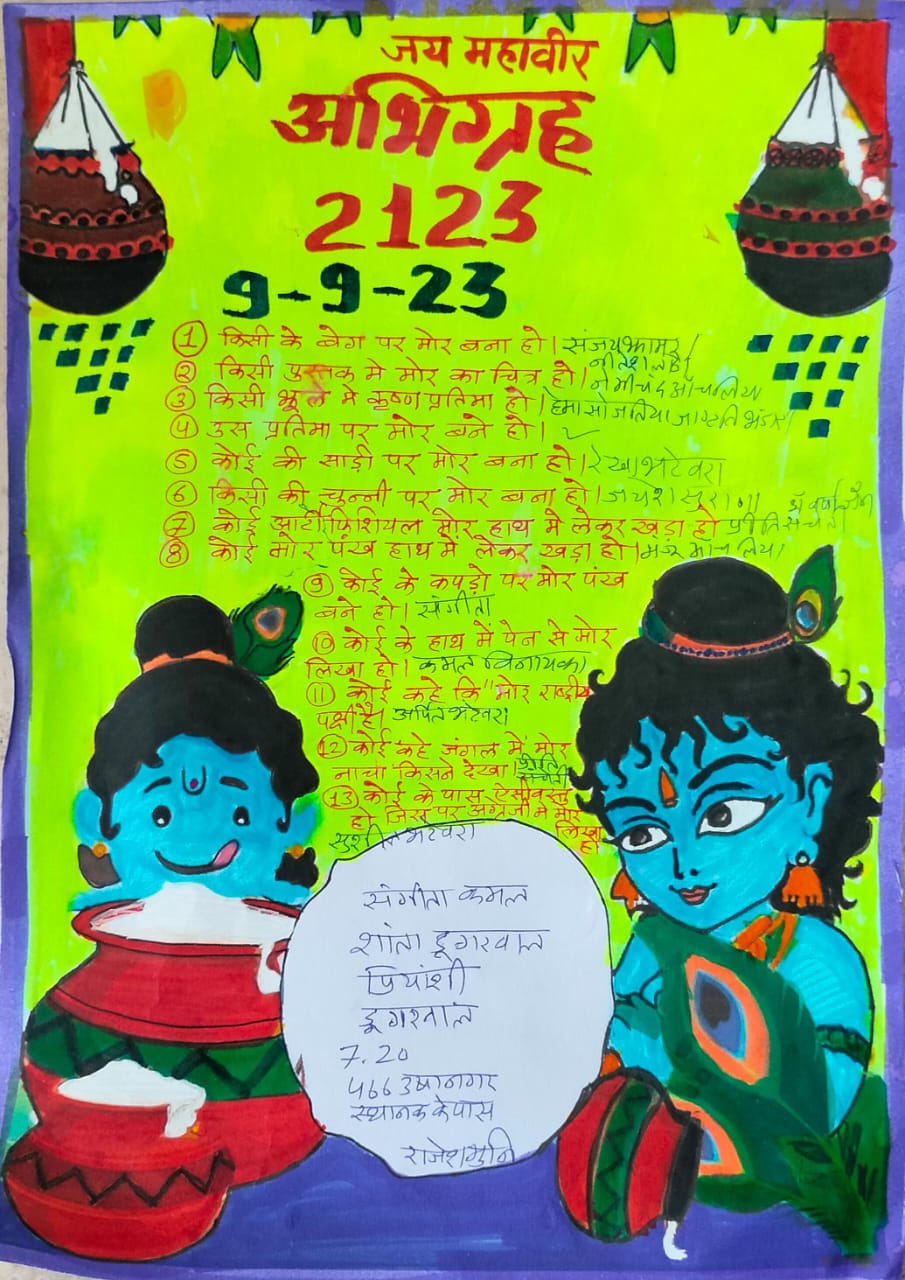 जय महावीर
अभिग्रह
2123
9-9-23
① किसी के बेग पर मोर बना हो। संजय झामर
② किसी पुस्तक मे मोर का चित्र हो।
③ किसी झूले मे कृष्ण प्रतिमा हो। हेमा सोजतिया जागृति भंडारी
④ उस प्रतिमा पर मोर बने हो।
⑤ कोई की साड़ी पर मोर बना हो। रेखा भटेवरा
⑥ किसी की चून्नी पर मोर बना हो। जयेश सुराणा
⑦ कोई आर्टीफिशियल मोर हाथ मे लेकर खड़ा हो प्रीति संचेती
⑧ कोई मोर पंख हाथ मे लेकर खड़ा हो।
⑨ कोई के कपड़ो पर मोर पंख
बने हो। संगीता
⑩ कोई के हाथ में पेन से मोर
लिखा हो। कमल विनायका
⑪ कोई कहे कि "मोर राष्ट्रीय
पक्षी है। अर्पित भटेवरा
⑫ कोई कहे जंगल में मोर
नाचा किसने देखा।
⑬ कोई के पास ऐसी वस्तु
हो जिस पर अंग्रेजी मे मोर
लिखा
हो
भटेवरा
संगीता कमल
शांता डूगरवाल
प्रियांशी
डूगरवाल
7.20
466 उषानगर
स्थानक के पास
राजेशमुनि